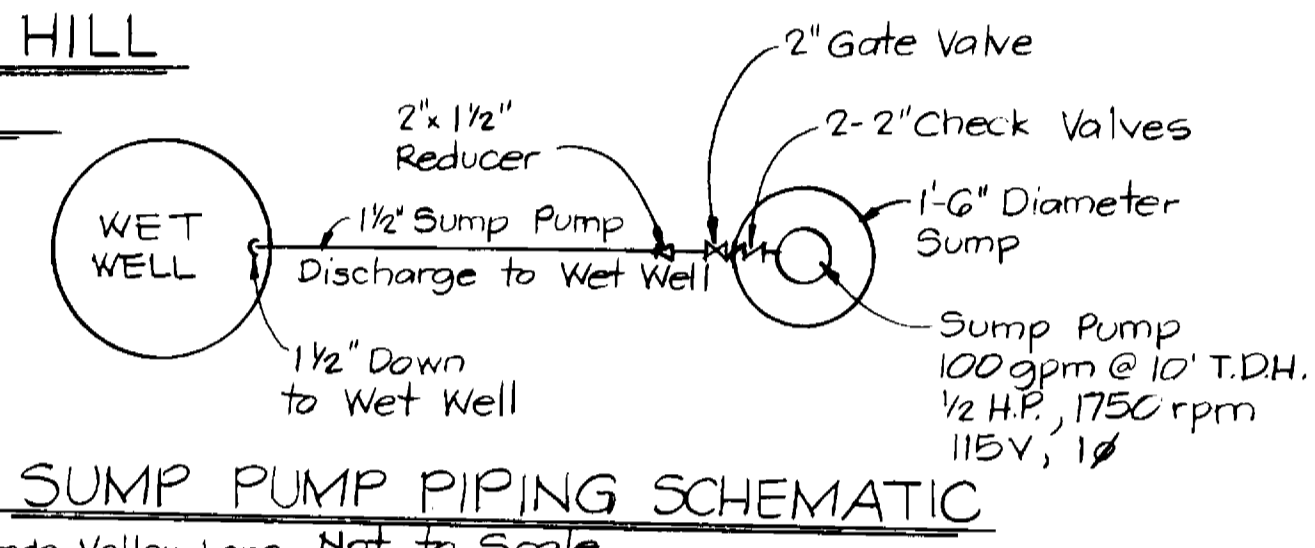 HILL
2" Gate Valve
2"x 1½"
Reducer
2-2" Check Valves
WET
WELL
1½" Sump Pump
Discharge to Wet Well
1'-6" Diameter
Sump
1½" Down
to Wet Well
Sump Pump
100 gpm @ 10' T.D.H.
½ H.P., 1750 rpm
115V, 1ø
SUMP PUMP PIPING SCHEMATIC
Valley Lane Not to Scale